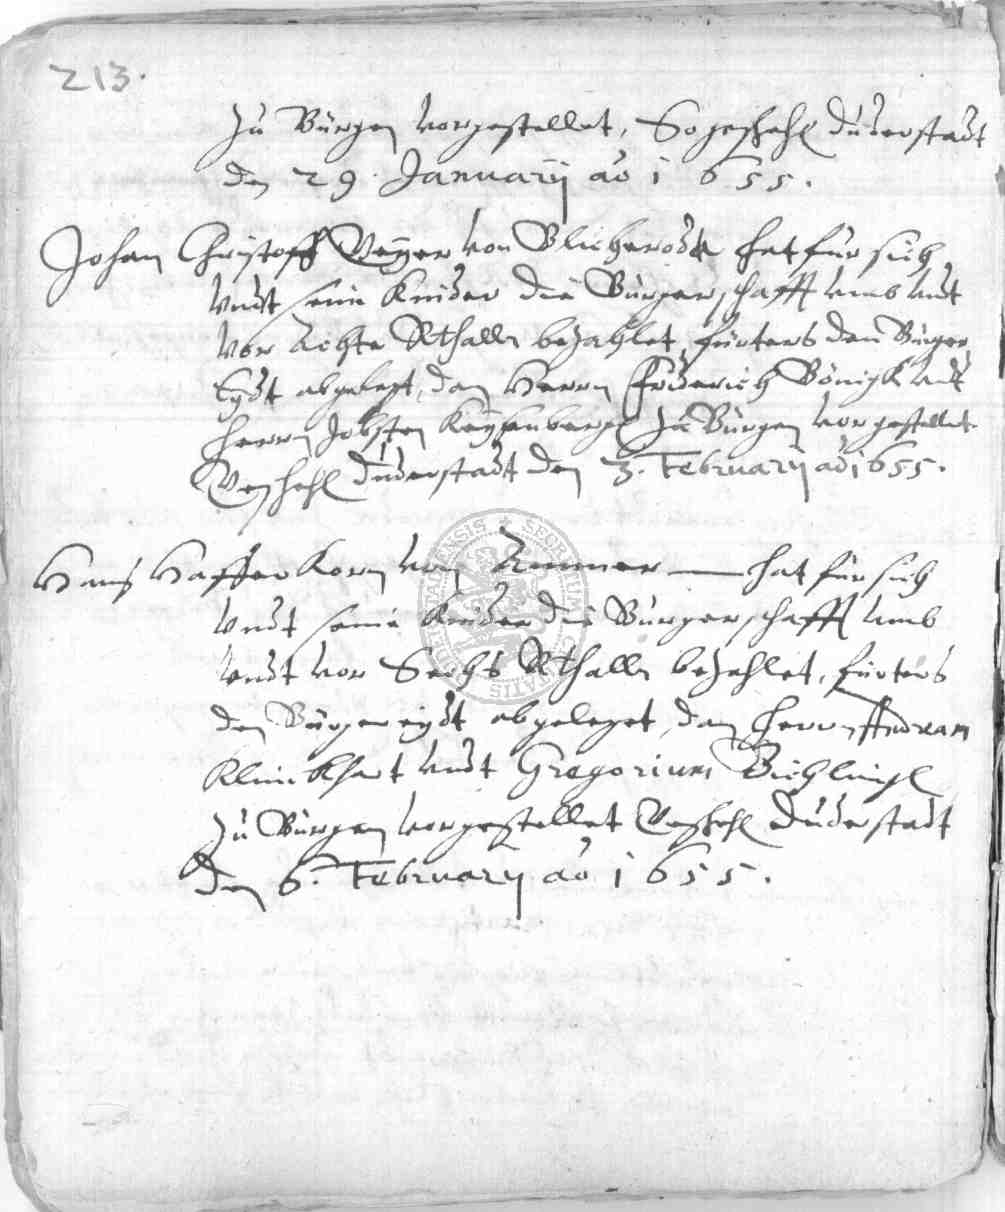 213.
Zu Bürgen vorgestellet, So geschehn Duderstadt
den 29. Januarij ao 1655.
Johan Christoff von Blicherode hat für sich
undt seine Kinder die Bürgerschafft umb undt
vor achte Rthall. bezahlet fürters den Bürger
Eydt abgelegt, den Herrn Friderich Bönigk undt
Herrn Jobsten Zu Bürgen vorgestellet.
Geschehn Duderstadt den 3. Februarij ao 1655.
Hans Hafferkorn von Ammer hat für sich
undt seine Kinder die Bürgerschafft umb
undt vor Sechs Rthall. bezahlet, fürters
den Bürgereydt abgeleget, den Herrn Andream
Klinckhart undt Gregorium
Zu Bürgen vorgestellet Geschehn Duderstadt
den 6. Februarij ao 1655.